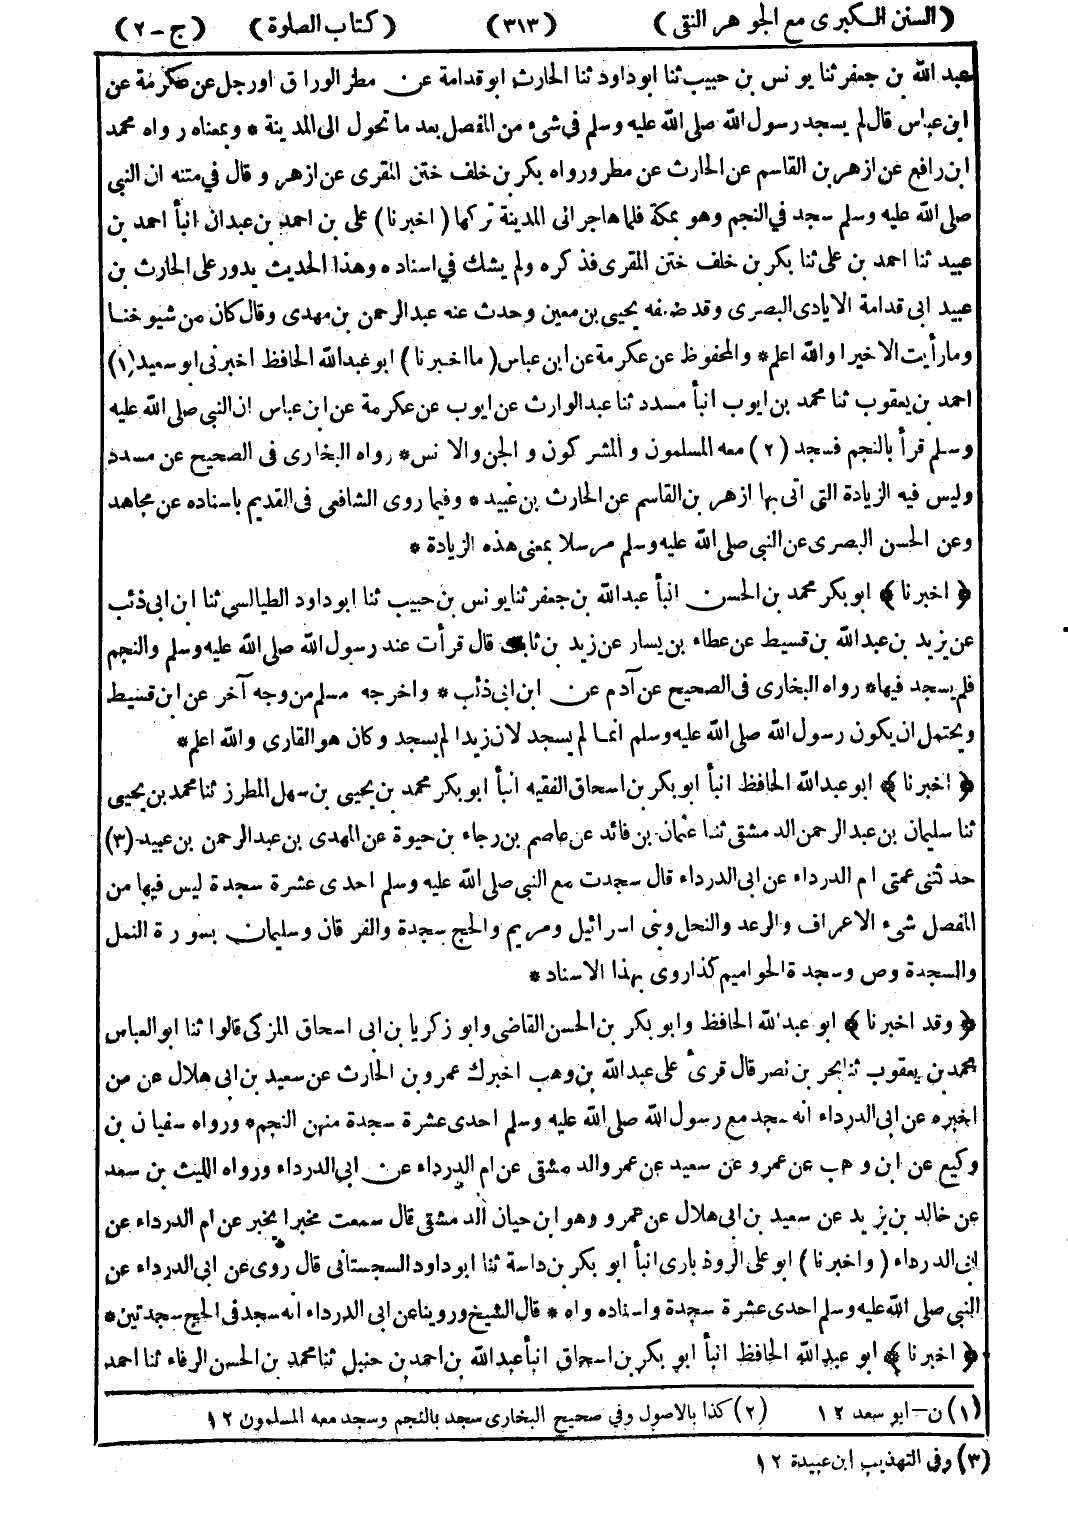 (السنن الكبرى مع الجوهر النقى) (٣١٣) (كتاب الصلوة) (ج - ٢)
عبد الله بن جعفر ثنا يونس بن حبيب ثنا ابو داود ثنا الحارث ابو قدامة عن مطر الوراق اورجل عن عكرمة عن
ابن عباس قال لم يسجد رسول الله صلى الله عليه وسلم فى شىء من المفصل بعد ما تحول الى المدينة * وبمعناه رواه محمد
ابن رافع عن ازهر بن القاسم عن الحارث عن مطر ورواه بكر بن خلف ختن المقرى عن ازهر و قال فى متنه ان النبى
صلى الله عليه وسلم سجد فى النجم وهو بمكة فلما هاجر الى المدينة تركها ( اخبرنا ) على بن احمد بن عبدان انبأ احمد بن
عبيد ثنا احمد بن على ثنا بكر بن خلف ختن المقرى فذكره ولم يشك فى اسناده وهذا الحديث يدور على الحارث بن
عبيد ابى قدامة الايادى البصرى وقد ضعفه يحيى بن معين وحدث عنه عبد الرحمن بن مهدى وقال كان من شيوخنا
وما رأيت الا خيرا والله اعلم * والمحفوظ عن عكرمة عن ابن عباس ( ما اخبرنا ) ابو عبد الله الحافظ اخبرنى ابو سعيد (١)
احمد بن يعقوب ثنا محمد بن ايوب انبأ مسدد ثنا عبد الوارث عن ايوب عن عكرمة عن ابن عباس ان النبى صلى الله عليه
وسلم قرأ بالنجم فسجد (٢) معه المسلمون و المشركون و الجن والانس * رواه البخارى فى الصحيح عن مسدد
وليس فيه الزيادة التى اتى بها ازهر بن القاسم عن الحارث بن عبيد * وفيما روى الشافعى فى القديم باسناده عن مجاهد
وعن الحسن البصرى عن النبى صلى الله عليه وسلم مرسلا بمعنى هذه الزيادة *
﴿ اخبرنا ﴾ ابو بكر محمد بن الحسن انبأ عبد الله بن جعفر ثنا يونس بن حبيب ثنا ابو داود الطيالسى ثنا ابن ابى ذئب
عن يزيد بن عبد الله بن قسيط عن عطاء بن يسار عن زيد بن ثابت قال قرأت عند رسول الله صلى الله عليه وسلم والنجم
فلم يسجد فيها * رواه البخارى فى الصحيح عن آدم عن ابن ابى ذئب * واخرجه مسلم من وجه آخر عن ابن قسيط
ويحتمل ان يكون رسول الله صلى الله عليه وسلم انما لم يسجد لان زيدا لم يسجد وكان هو القارى والله اعلم *
﴿ اخبرنا ﴾ ابو عبد الله الحافظ انبأ ابو بكر بن اسحاق الفقيه انبأ ابو بكر محمد بن يحيى بن سهل المطرز ثنا محمد بن يحيى
ثنا سليمان بن عبد الرحمن الدمشقى ثنا عثمان بن فائد عن عاصم بن رجاء بن حيوة عن المهدى بن عبد الرحمن بن عبيد (٣)
حدثنى عمتى ام الدرداء عن ابى الدرداء قال سجدت مع النبى صلى الله عليه وسلم احدى عشرة سجدة ليس فيها من
المفصل شىء الاعراف والرعد والنحل وبنى اسرائيل ومريم والحج سجدة والفرقان وسليمان بسورة النمل
والسجدة وص وسجدة الحواميم كذا روى بهذا الاسناد *
﴿ وقد اخبرنا ﴾ ابو عبد الله الحافظ وابو بكر بن الحسن القاضى وابو زكريا بن ابى اسحاق المزكى قالوا ثنا ابو العباس
محمد بن يعقوب ثنا بحر بن نصر قال قرئ على عبد الله بن وهب اخبرك عمرو بن الحارث عن سعيد بن ابى هلال عن من
اخبره عن ابى الدرداء انه سجد مع رسول الله صلى الله عليه وسلم احدى عشرة سجدة منهن النجم * ورواه سفيان بن
وكيع عن ابن وهب عن عمرو عن سعيد عن عمرو الدمشقى عن ام الدرداء عن ابى الدرداء ورواه الليث بن سعد
عن خالد بن يزيد عن سعيد بن ابى هلال عن عمرو وهو ابن حيان الدمشقى قال سمعت مخبرا يخبر عن ام الدرداء عن
ابى الدرداء ( واخبرنا ) ابو على الروذبارى انبأ ابو بكر بن داسة ثنا ابو داود السجستانى قال روى عن ابى الدرداء عن
النبى صلى الله عليه وسلم احدى عشرة سجدة واسناده واه * قال الشيخ وروينا عن ابى الدرداء انه سجد فى الحج سجدتين *
﴿ اخبرنا ﴾ ابو عبد الله الحافظ انبأ ابو بكر بن اسحاق انبأ عبد الله بن احمد بن حنبل ثنا محمد بن الحسن الرفاء ثنا احمد
(١) ن - ابو سعد ١٢ (٢) كذا بالاصول وفى صحيح البخارى سجد بالنجم وسجد معه المسلمون ١٢
(٣) وفى التهذيب ابن عبيدة ١٢